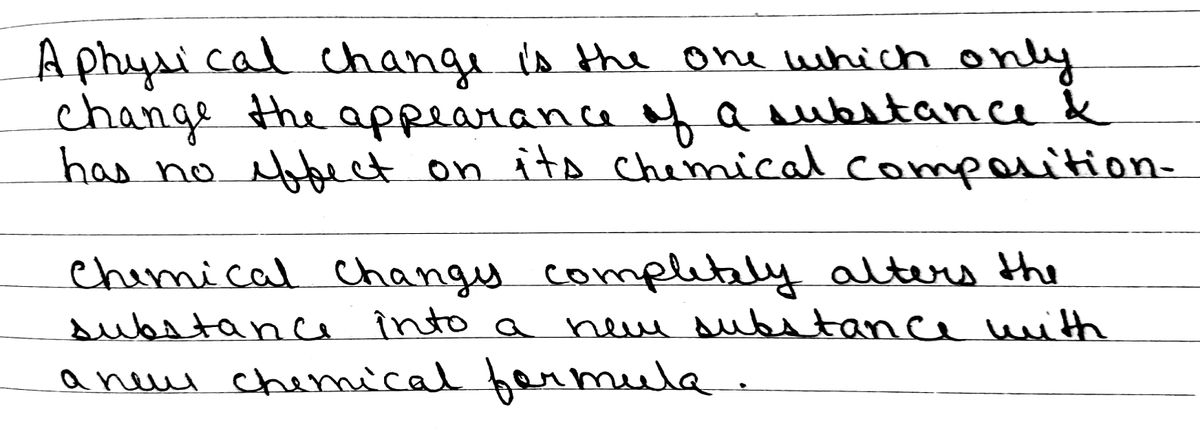 A physical change is the one which only
change the appearance of a substance &
has no effect on its chemical composition-
chemical changes completely alters the
substance into a new substance with
a new chemical formula .